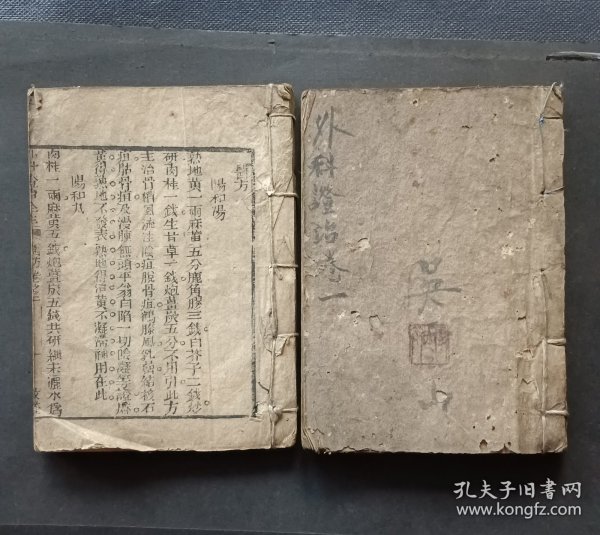 醫方
陽和湯
熟地黃一兩麻黃五分鹿角膠三錢白芥子二錢炒
研肉桂一錢生甘草一錢炮薑炭五分不用引此方
主治骨槽風流注陰疽脫骨疽鶴膝風乳巖結核石
疽貼骨疽及漫腫無頭平塌白陷一切陰凝等證麻
黃得熟地不發表熟地得麻黃不凝滯神用在此
陽和丸
肉桂一兩麻黃五錢炮薑炭五錢共研細末
外科證治卷一
吳
孔夫子旧書网
www.kongfz.com